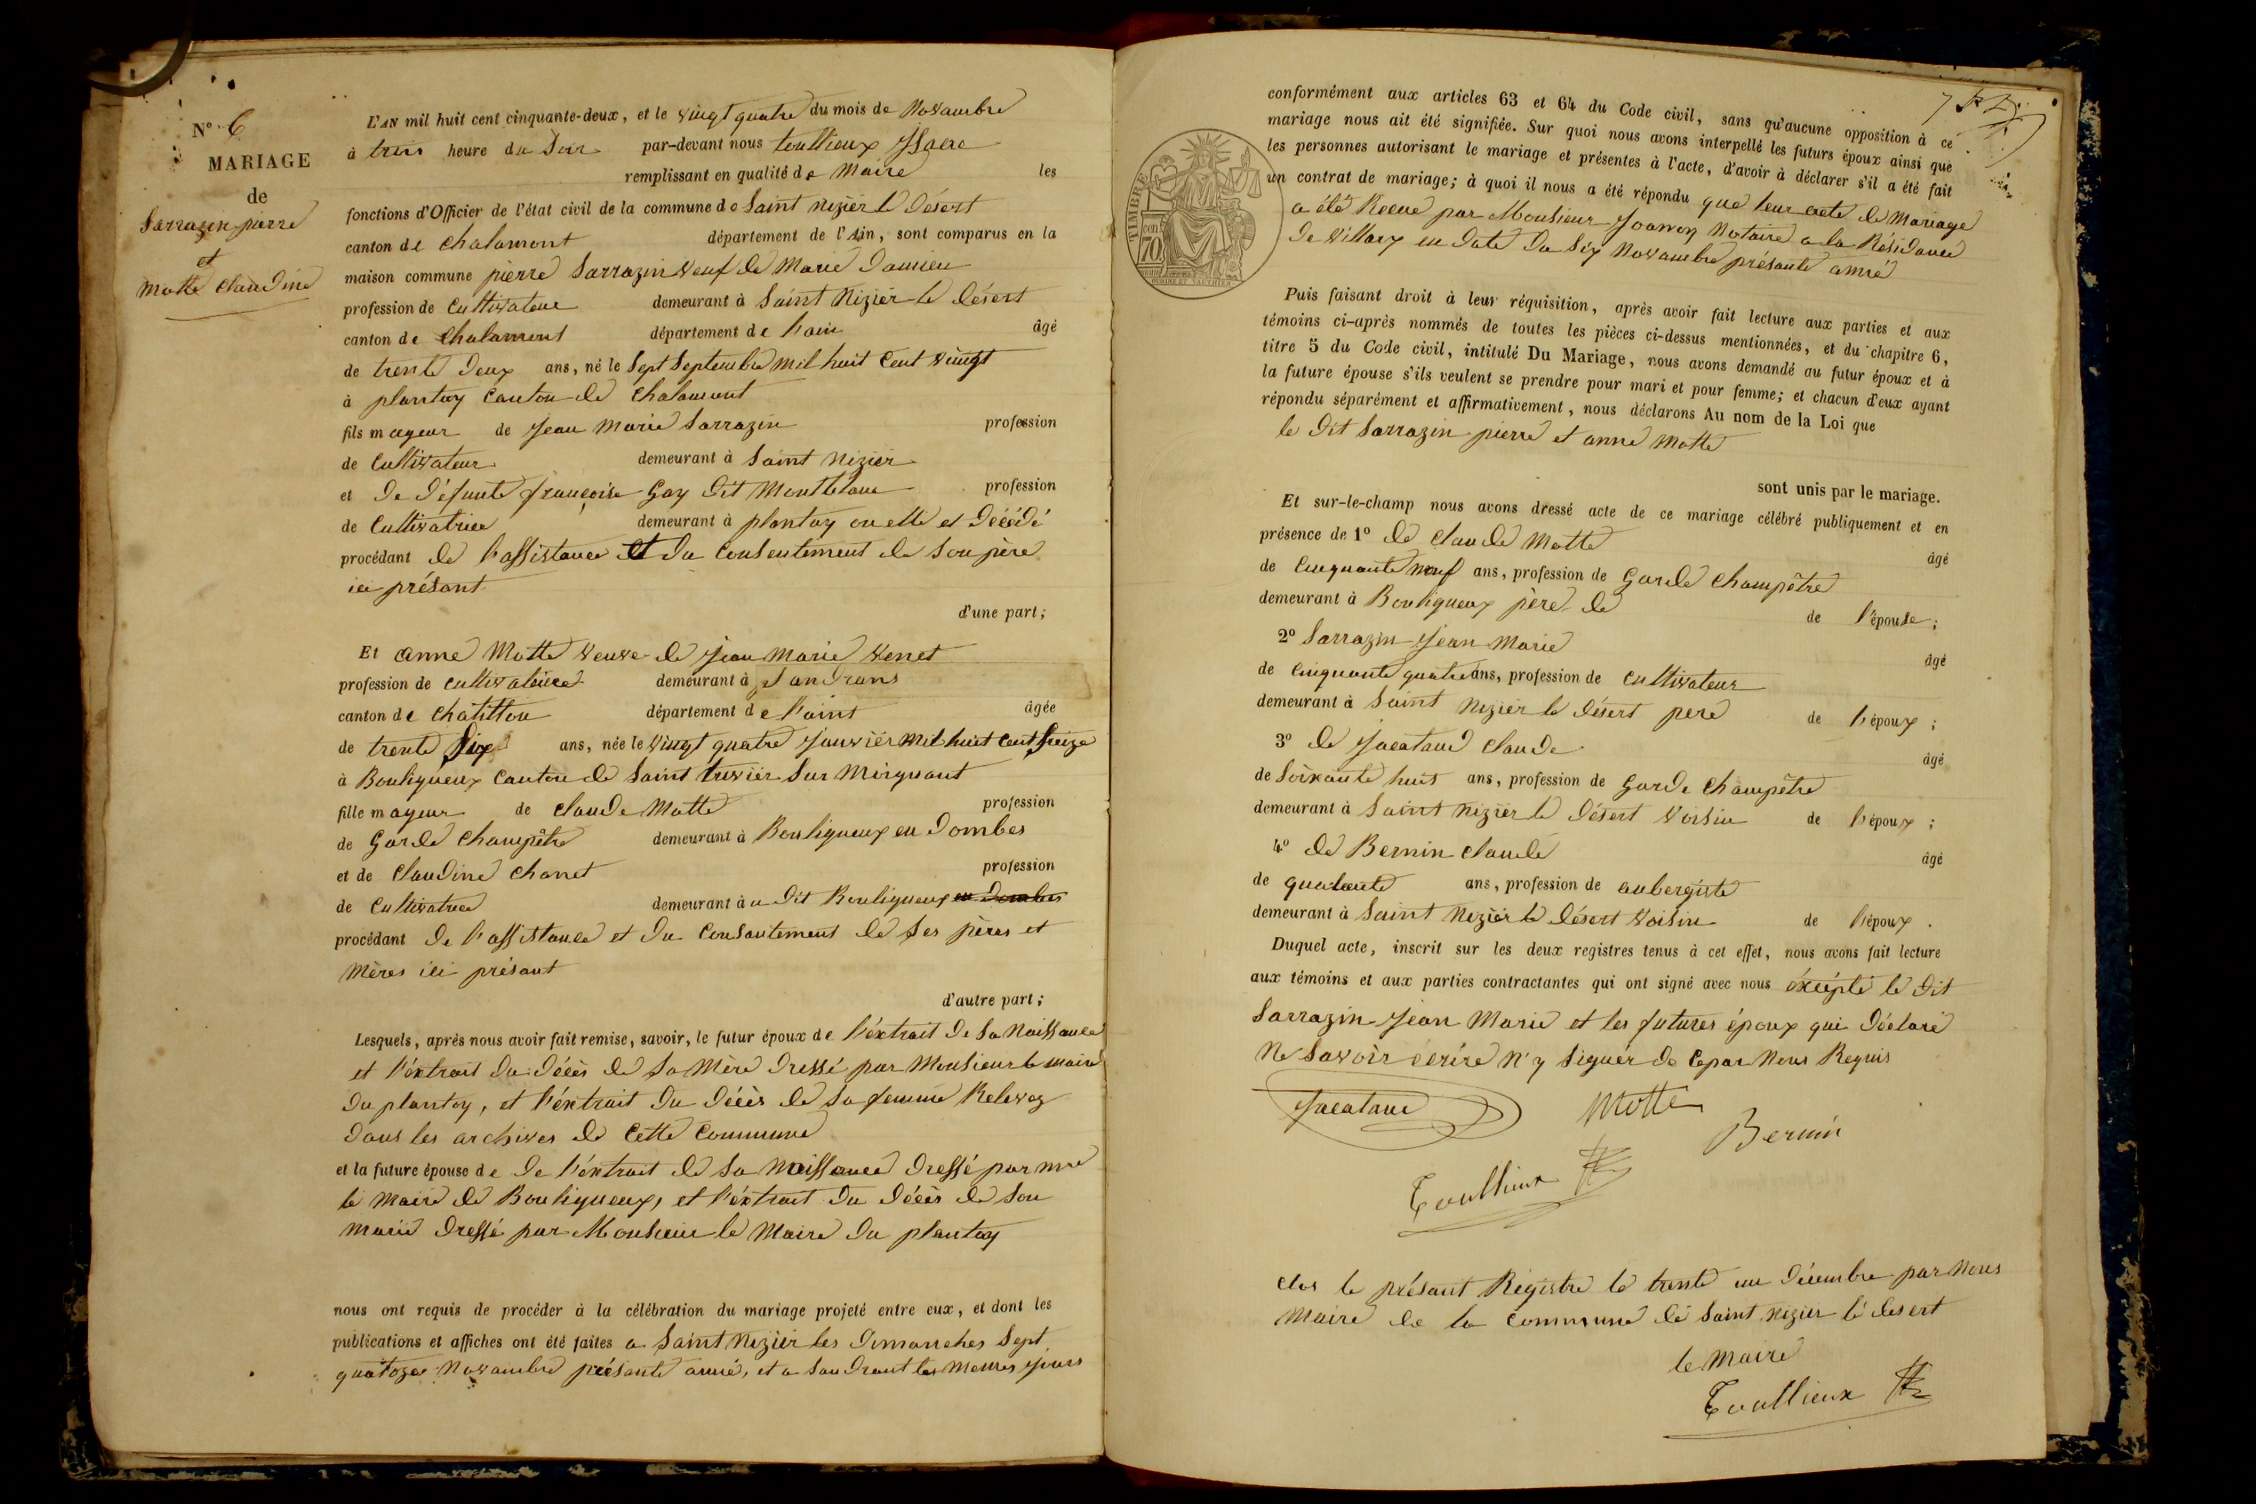 N° 6
MARIAGE
de
Sarrazin pierre
et
Motte Claudine
L'AN mil huit cent cinquante-deux, et le vingt quatre du mois de Novambre
à trois heure du Soir par-devant nous toullieux Isaac
remplissant en qualité de Maire les
fonctions d'Officier de l'état civil de la commune de Saint nizier le Désert
canton de chalamont département de l'Ain, sont comparus en la
maison commune pierre Sarrazin veuf de Marie Damien
profession de Cultivateur demeurant à Saint Nizier le Désert
canton de chalamont département de l'ain âgé
de trente Deux ans, né le Sept Septembre mil huit Cent vingt
à plantay Canton de Chalamont
fils mageur de Jean Marie Sarrazin profession
de Cultivateur demeurant à Saint Nizier
et De Défunte françoise Gay Dit Montblanc profession
de Cultivatrice demeurant à plantay ou elle et Décédé
procédant de l'assistance et Du Consentement de Son père
ici présant
d'une part;
Et anne Motte veuve de Jean Marie Venet
profession de cultivatrice demeurant à Sandrans
canton de chatillon département de l'aint âgée
de trente Six ans, née le vingt quatre Janvier Mil huit Cent Seize
à Bouligneux Canton de Saint trivier Sur Moignant
fille mageur de claude Motte profession
de Garde Champêtre demeurant à Bouligneux en Dombes
et de claudine Chanet profession
de Cultivatrice demeurant à u Dit Bouligneux en Dombes
procédant De l'assistance et Du Consantement de Ses pères et
Mères ici présant
d'autre part;
Lesquels, après nous avoir fait remise, savoir, le futur époux de l'éxtrait De Sa Naissance
et l'éxtrait du Décès de Sa Mère Dressé par Monsieur le maire
Du plantay, et l'éxtrait Du Décès de Sa femme Relevez
Dans les archives de Cette Commune
et la future épouse de De l'éxtrait de Sa Naissance Dressé par mre
le Maire de Bouligneux, et l'éxtrait Du Décès de Son
Marié Dressé par Monsieur le Maire Du plantay
nous ont requis de procéder à la célébration du mariage projeté entre eux, et dont les
publications et affiches ont été faites a Saint Nizier les Dimanches Sept
quatoze Novambre présante année, et a Sandrant les Memes Jours
conformément aux articles 63 et 64 du Code civil, sans qu'aucune opposition à ce
mariage nous ait été signifiée. Sur quoi nous avons interpellé les futurs époux ainsi que
les personnes autorisant le mariage et présentes à l'acte, d'avoir à déclarer s'il a été fait
un contrat de mariage; à quoi il nous a été répondu que leur acte de Mariage
a été Recue par Monsieur Joannon Notaire a la Résidance
De Villars en Date Du Six Novambre présante année
TIMBRE
70
Puis faisant droit à leur réquisition, après avoir fait lecture aux parties et aux
témoins ci-après nommés de toutes les pièces ci-dessus mentionnées, et du chapitre 6,
titre 5 du Code civil, intitulé Du Mariage, nous avons demandé au futur époux et à
la future épouse s'ils veulent se prendre pour mari et pour femme; et chacun d'eux ayant
répondu séparément et affirmativement, nous déclarons Au nom de la Loi que
le Dit Sarrazin pierre et anne Motte
sont unis par le mariage.
Et sur-le-champ nous avons dressé acte de ce mariage célébré publiquement et en
présence de 1° de claude Motte âgé
de Cinquante Neuf ans, profession de Garde Champêtre
demeurant à Bouligneux père de de l'épouse;
2° Sarrazin Jean Marie âgé
de Cinquante quatre ans, profession de Cultivateur
demeurant à Saint Nizier le Désert pere de l'époux;
3° de Jacatand Claude âgé
de Soixante huit ans, profession de Garde Champêtre
demeurant à Saint Nizier le Désert Voisin de l'époux;
4° de Bernin claude âgé
de quarante ans, profession de aubergiste
demeurant à Saint Nizier le Désert Voisin de l'époux.
Duquel acte, inscrit sur les deux registres tenus à cet effet, nous avons fait lecture
aux témoins et aux parties contractantes qui ont signé avec nous éxcépté le Dit
Sarrazin Jean Marie et les futures époux qui Déclaré
Ne Savoir écrire N'y Signér De Cepar Nous Requis
Jacatand
Motte
Bernin
Toullieux
Clos le présant Régistre le trente un Décembre par Nous
Maire de la Commune de Saint Nizier le désert
le Maire
Toullieux